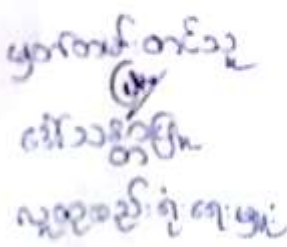 မှတ်တမ်းတင်သူ
ဒေါ်သန္တာမြိုင်
လူထုစည်းရုံးရေးမှူး